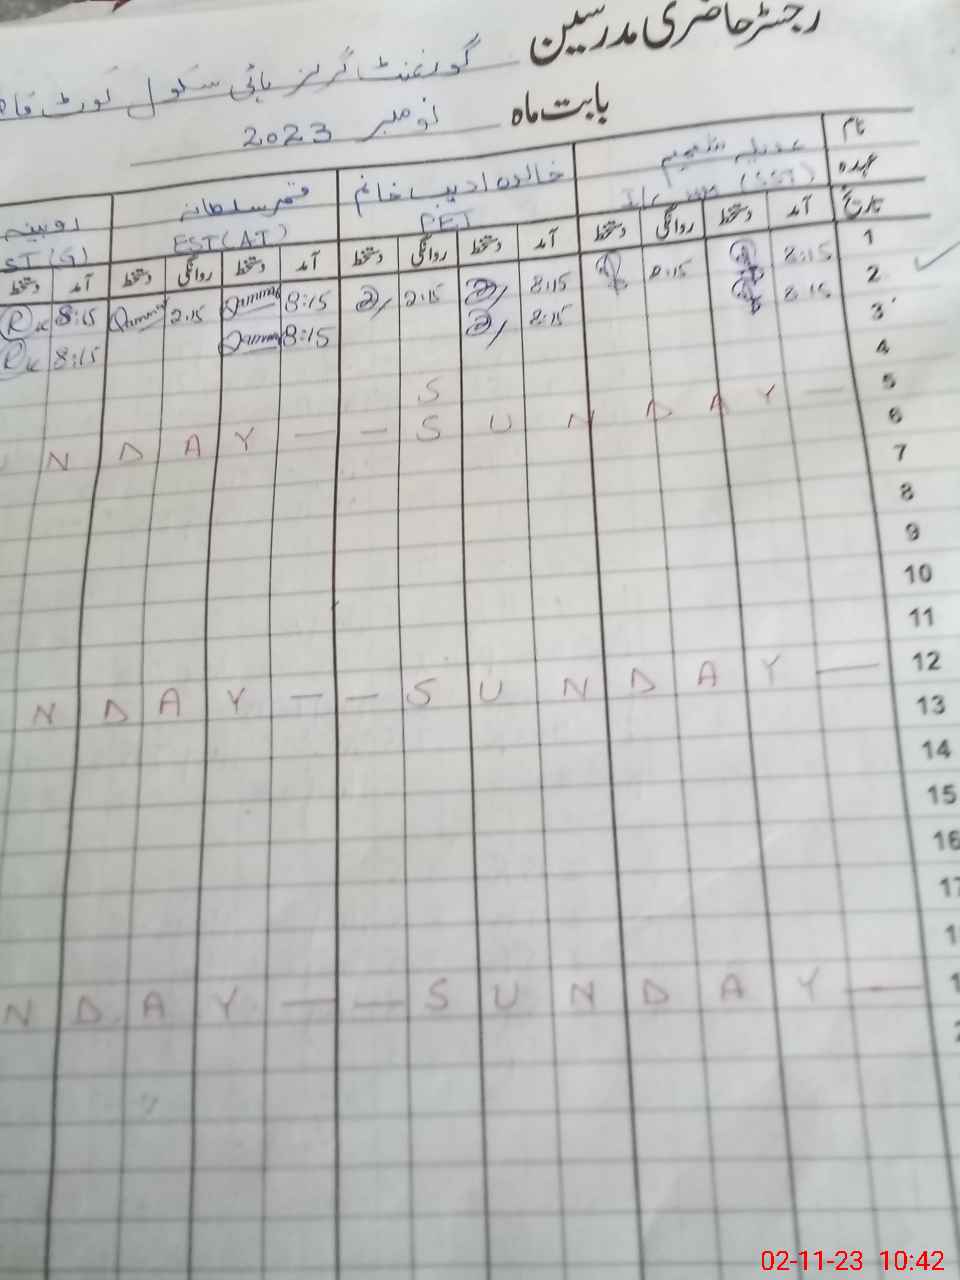 رجسٹر حاضری مدرسین
گورنمنٹ گرلز ہائی سکول کوٹ
بابت ماہ نومبر 2023
نام خالدہ ادیب خانم قمر سلطانہ روبینہ
عہدہ (SST) PET EST(AT) ST(G)
تاریخ آمد دستخط روانگی دستخط آمد دستخط روانگی دستخط آمد دستخط روانگی دستخط آمد دستخط
1 8:15 2:15 8:15 2:15 8:15 2:15 8:15
2 8:15 8:15 8:15 8:15
3
4
5 — Y A D N U S — — Y A D N
6 S
7
8
9
10
11
12 — Y A D N U S — — Y A D N
13
14
15
16
17
1
1 — Y A D N U S — — Y A D N
2
02-11-23 10:42